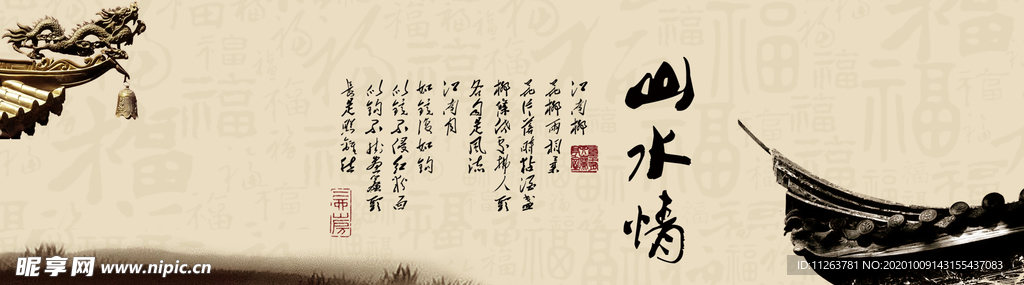 山水情
江南柳
花柳兩相柔
花片落时黏酒盏
柳條低處拂人頭
各自是风流
江南月
如镜復如钩
以镜不侵红粉面
以钩不挂畫簾頭
長是照離愁
昵享网 www.nipic.cn
ID:11263781 NO:20201009143155437083